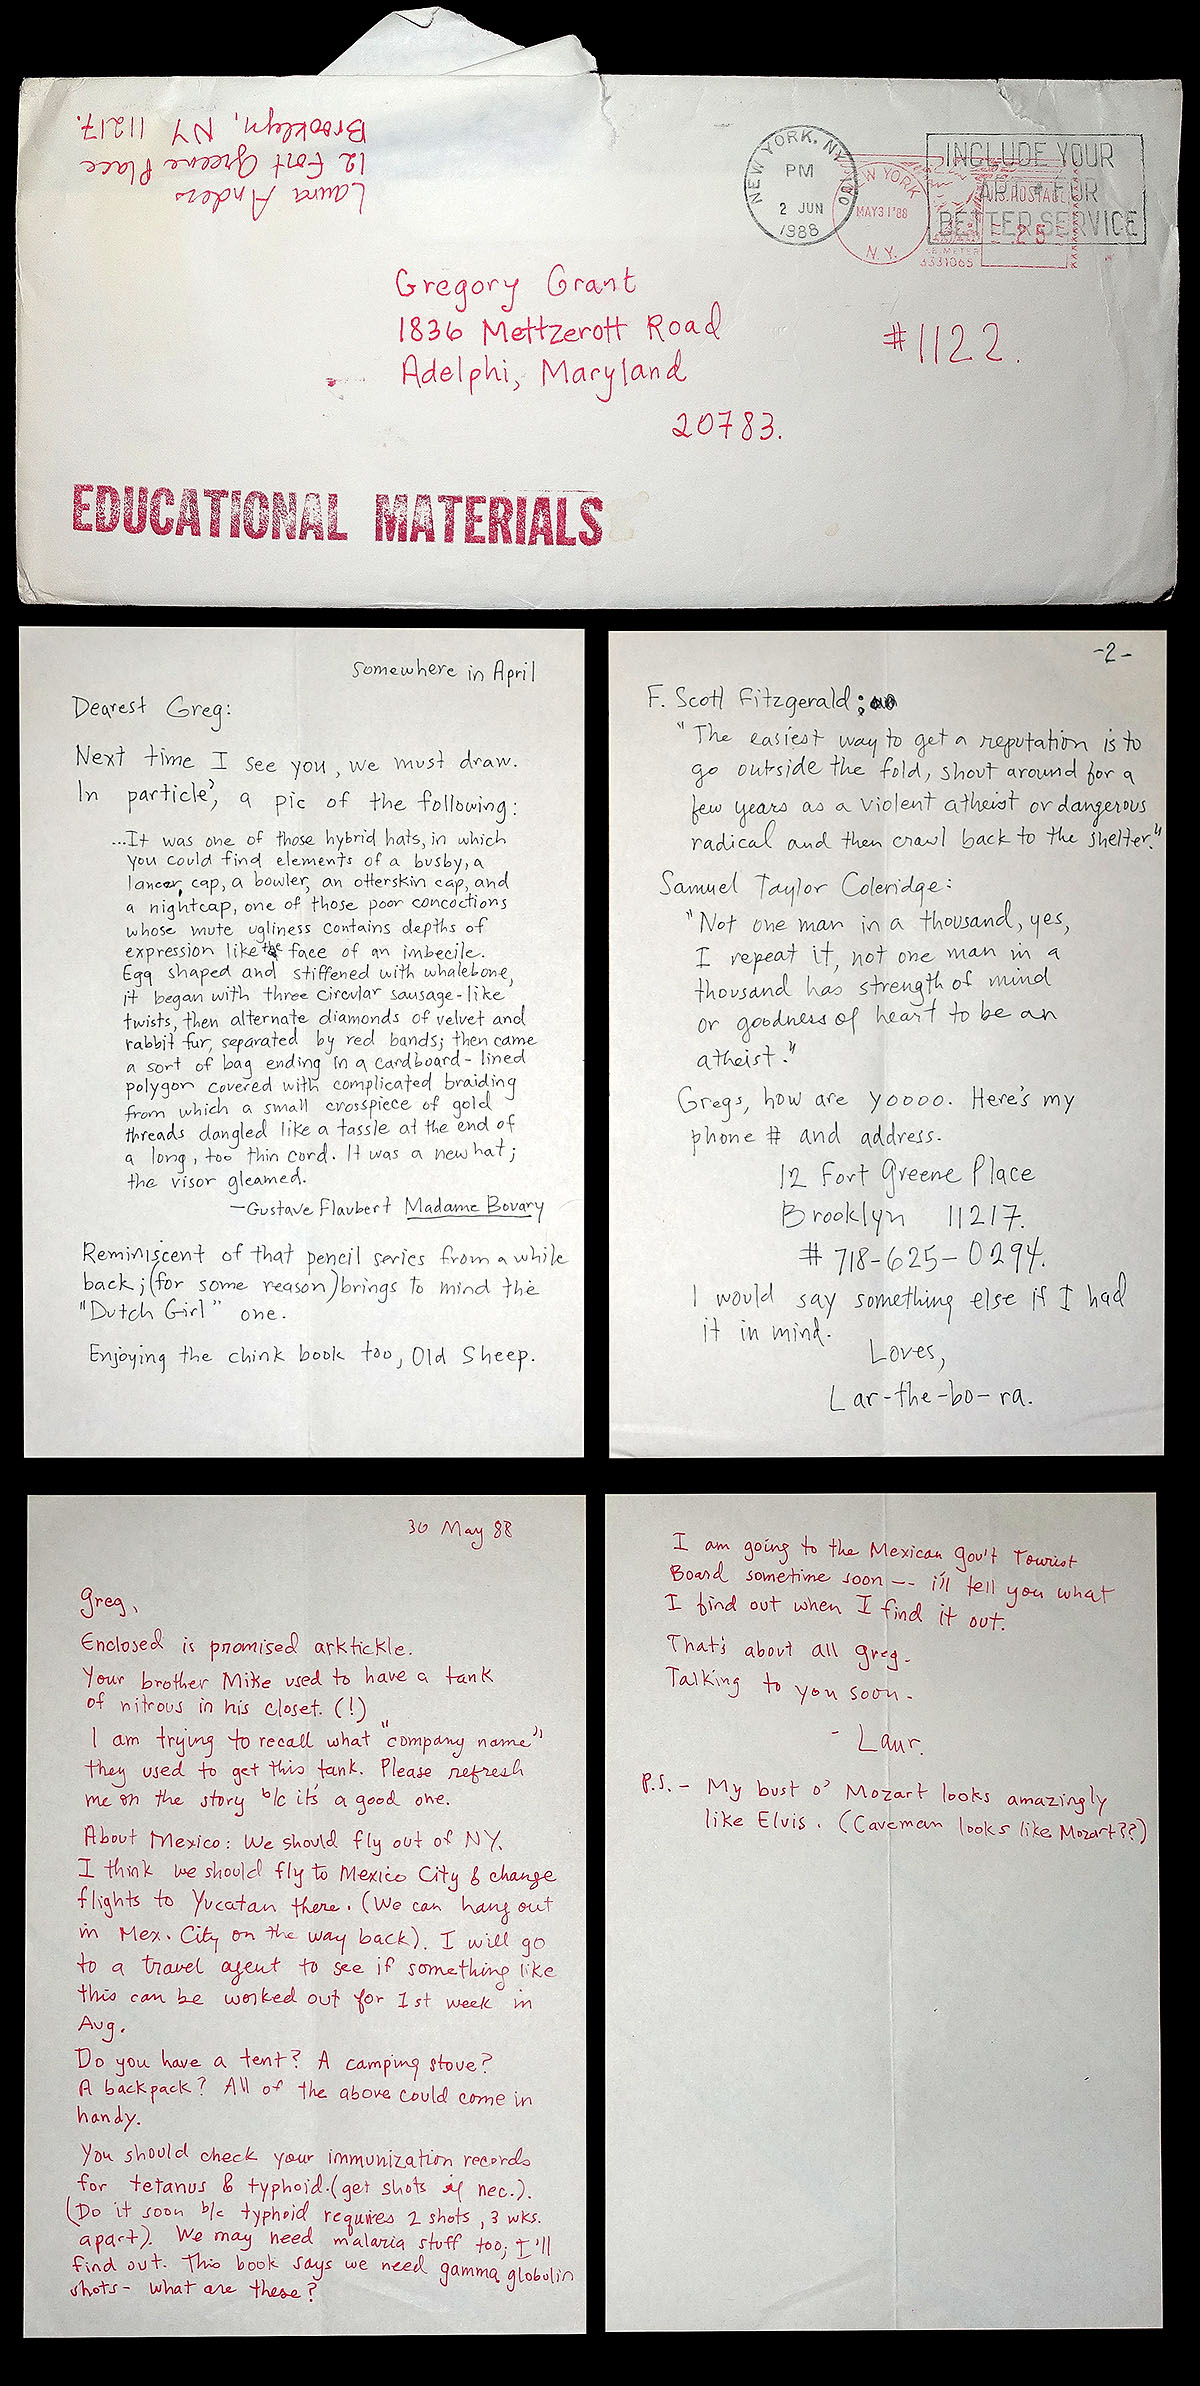 Laura Anders
12 Fort Greene Place
Brooklyn, NY 11217.
NEW YORK, NY
PM
2 JUN
1988
INCLUDE YOUR
APT # FOR
BETTER SERVICE
NEW YORK
MAY 31 '88
N.Y.
U.S. POSTAGE
.25
METER
3331065
Gregory Grant
1836 Mettzerott Road
Adelphi, Maryland
20783.
#1122.
EDUCATIONAL MATERIALS
Somewhere in April
Dearest Greg:
Next time I see you, we must draw.
In particle', a pic of the following:
...It was one of those hybrid hats, in which
you could find elements of a busby, a
lancer cap, a bowler, an otterskin cap, and
a nightcap, one of those poor concoctions
whose mute ugliness contains depths of
expression like the face of an imbecile.
Egg shaped and stiffened with whalebone,
it began with three circular sausage-like
twists, then alternate diamonds of velvet and
rabbit fur, separated by red bands; then came
a sort of bag ending in a cardboard-lined
polygon covered with complicated braiding
from which a small crosspiece of gold
threads dangled like a tassle at the end of
a long, too thin cord. It was a new hat;
the visor gleamed.
—Gustave Flaubert Madame Bovary
Reminiscent of that pencil series from a while
back; (for some reason) brings to mind the
"Dutch Girl" one.
Enjoying the chink book too, Old Sheep.
-2-
F. Scott Fitzgerald:
"The easiest way to get a reputation is to
go outside the fold, shout around for a
few years as a violent atheist or dangerous
radical and then crawl back to the shelter."
Samuel Taylor Coleridge:
"Not one man in a thousand, yes,
I repeat it, not one man in a
thousand has strength of mind
or goodness of heart to be an
atheist."
Gregs, how are yoooo. Here's my
phone # and address.
12 Fort Greene Place
Brooklyn 11217.
# 718-625-0294.
I would say something else if I had
it in mind.
Loves,
Lar-the-bo-ra.
30 May 88
Greg,
Enclosed is promised arktickle.
Your brother Mike used to have a tank
of nitrous in his closet. (!)
I am trying to recall what "company name"
they used to get this tank. Please refresh
me on the story b/c it's a good one.
About Mexico: We should fly out of NY.
I think we should fly to Mexico City & change
flights to Yucatan there. (We can hang out
in Mex. City on the way back). I will go
to a travel agent to see if something like
this can be worked out for 1st week in
Aug.
Do you have a tent? A camping stove?
A backpack? All of the above could come in
handy.
You should check your immunization records
for tetanus & typhoid. (get shots if nec.).
(Do it soon b/c typhoid requires 2 shots, 3 wks.
apart). We may need malaria stuff too; I'll
find out. This book says we need gamma globulin
shots - what are these?
I am going to the Mexican Gov't Tourist
Board sometime soon -- i'll tell you what
I find out when I find it out.
That's about all Greg.
Talking to you soon.
- Laur.
P.S. - My bust o' Mozart looks amazingly
like Elvis. (Caveman looks like Mozart??)